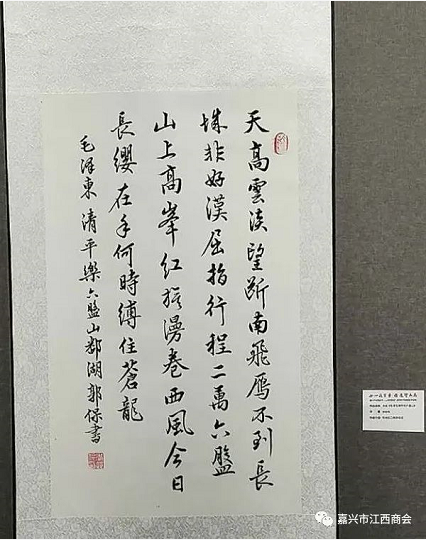 天高雲淡望斷南飛雁不到長
城非好漢屈指行程二萬六盤
山上高峯紅旗漫卷西風今日
長纓在手何時縛住蒼龍
毛澤東清平樂六盤山鄱湖郭保書
嘉兴市江西商会